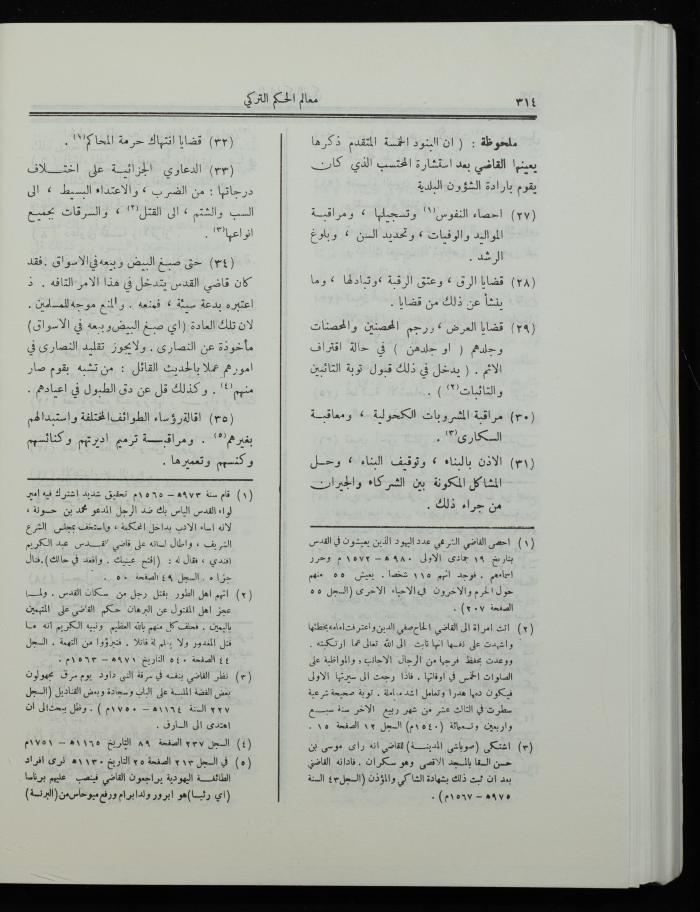 ٣١٤
معالم الحكم التركي
ملحوظة : ( ان البنود الخمسة المتقدم ذكرها
يعينها القاضي بعد استشارة المحتسب الذي كان
يقوم بادارة الشؤون البلدية
(٢٧) احصاء النفوس(١) وتسجيلها ، ومراقبة
المواليد والوفيات ، وتحديد السن ، وبلوغ
الرشد .
(٢٨) قضايا الرق ، وعتق الرقبة ، وتبادلها ، وما
ينشأ عن ذلك من قضايا .
(٢٩) قضايا العرض ، ورجم المحصنين والمحصنات
وجلدهم ( او جلدهن ) في حالة اقتراف
الاثم . ( يدخل في ذلك قبول توبة التائبين
والتائبات(٢) ) .
(٣٠) مراقبة المشروبات الكحولية ، ومعاقبة
السكارى(٣) .
(٣١) الاذن بالبناء ، وتوقيف البناء ، وحل
المشاكل المكونة بين الشركاء والجيران
من جراء ذلك .
(١) احصى القاضي الشرعي عدد اليهود الذين يعيشون في القدس
بتاريخ ١٩ جمادى الاولى ٩٨٠ھ – ١٥٧٢ م وحرر
اسماءهم . فوجد انهم ١١٥ شخصا . يعيش ٥٥ منهم
حول الحرم والاخرون في الاحياء الاخرى (السجل ٥٥
الصفحة ٢٠٧) .
(٢) اتت امرأة الى القاضي الحاج صفي الدين واعترفت امامه بخطئها
واشهدت على نفسها انها تابت الى الله تعالى عما ارتكبته .
ووعدت بحفظ فرجها من الرجال الاجانب ، والمواظبة على
الصلوات الخمس في اوقاتها . فاذا رجعت الى سيرتها الاولى
فيكون دمها هدرا وتعامل اشد معاملة . توبة صحيحة شرعية
سطرت في الثالث عشر من شهر ربيع الاخر سنة سبع
واربعين وتسعمائة (١٥٤٠م) السجل ١٢ الصفحة ١٥ .
(٣) اشتكى (صوباشي المدينة) للقاضي انه رأى موسى بن
حسن السقا بالمسجد الاقصى وهو سكران . فادانه القاضي
بعد ان ثبت ذلك بشهادة الشاكي والمؤذن (السجل ٤٣ السنة
٩٧٥ھ – ١٥٦٧م) .
(٣٢) قضايا انتهاك حرمة المحاكم(١) .
(٣٣) الدعاوي الجزائية على اختلاف
درجاتها : من الضرب ، والاعتداء البسيط ، الى
السب والشتم ، الى القتل(٢) ، والسرقات بجميع
انواعها(٣) .
(٣٤) حتى صبغ البيض وبيعه في الاسواق . فقد
كان قاضي القدس يتدخل في هذا الامر التافه . ذ
اعتبره بدعة سيئة ، فمنعه . والمنع موجه للمسلمين .
لان تلك العادة (اي صبغ البيض وبيعه في الاسواق)
مأخوذة عن النصارى . ولا يجوز تقليد النصارى في
امورهم عملا بالحديث القائل : من تشبه بقوم صار
منهم(٤) . وكذلك قل عن دق الطبول في اعيادهم .
(٣٥) اقالة رؤساء الطوائف المختلفة واستبدالهم
بغيرهم(٥) . ومراقبة ترميم اديرتهم وكنائسهم
وكنسهم وتعميرها .
(١) قام سنة ٩٧٣ھ – ١٥٦٥م تحقيق شديد اشترك فيه امير
لواء القدس الياس بك ضد الرجل المدعو محمد بن حسونة ،
لانه اساء الادب بداخل المحكمة ، واستخف بمجلس الشرع
الشريف ، واطال لسانه على قاضي القدس عبد الكريم
افندي ، فقال له : (افتح عينيك . واقعد في حالك) . فنال
جزاءه . السجل ٤٩ الصفحة ٥٠ .
(٢) اتهم اهل الطور بقتل رجل من سكان القدس . ولما
عجز اهل المقتول عن البرهان حكم القاضي على المتهمين
باليمين . فحلف كل منهم بالله العظيم ونبيه الكريم انه ما
قتل المغدور ولا يعلم له قاتلا . فتبرؤوا من التهمة . السجل
٤٤ الصفحة ٥٤٠ التاريخ ٩٧١ھ – ١٥٦٣م .
(٣) نظر القاضي بنفسه في سرقة النبي داود يوم سرق مجهولون
بعض الفضة الملبسة على الباب وسجادة وبعض القناديل (السجل
٢٢٧ السنة ١١٦٤ھ – ١٧٥٠م ) . وظل يبحث الى ان
اهتدى الى السارق .
(٤) السجل ٢٣٧ الصفحة ٨٩ التاريخ ١١٦٥ھ – ١٧٥١م
(٥) في السجل ٢١٣ الصفحة ٢٥ التاريخ ١١٣٠ھ نرى افراد
الطائفة اليهودية يراجعون القاضي فينصب عليهم برناسا
(اي رئيسا) هو ابرور ولد ابرام ورفع ميوحاس من (البرنسة)